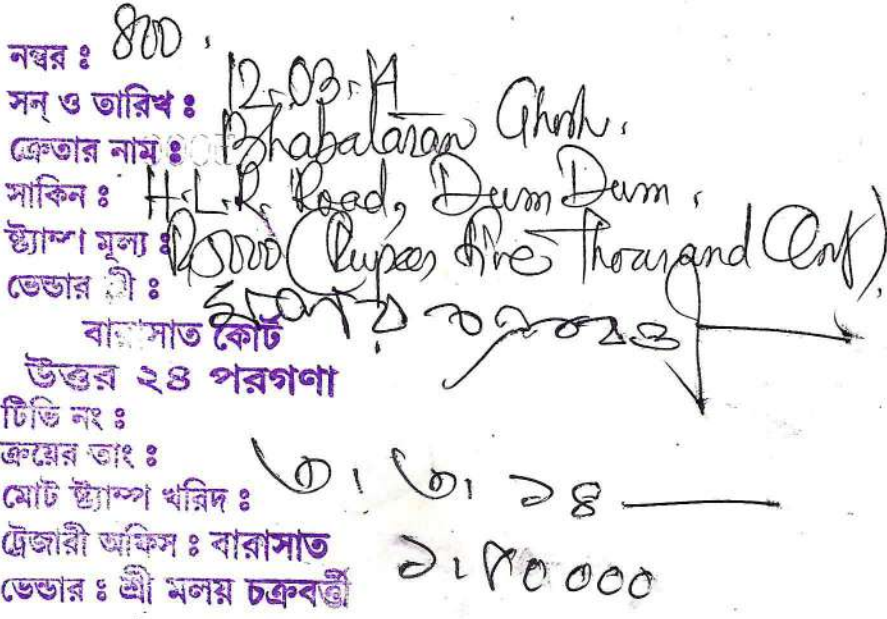 নম্বর ঃ 800.
সন্ ও তারিখ ঃ 12.03.14
ক্রেতার নাম ঃ Bhabataran Ghosh.
সাকিন ঃ H.L.R. Road, Dum Dum.
ষ্ট্যাম্প মূল্য ঃ Rs5000 (Rupees five Thousand Only).
ভেন্ডার শ্রী ঃ
বারাসাত কোর্ট
উত্তর ২৪ পরগণা
টিভি নং ঃ
ক্রয়ের তাং ঃ ৩. ৩. ১৪
মোট ষ্ট্যাম্প খরিদ ঃ
ট্রেজারী অফিস ঃ বারাসাত
ভেন্ডার ঃ শ্রী মলয় চক্রবর্ত্তী